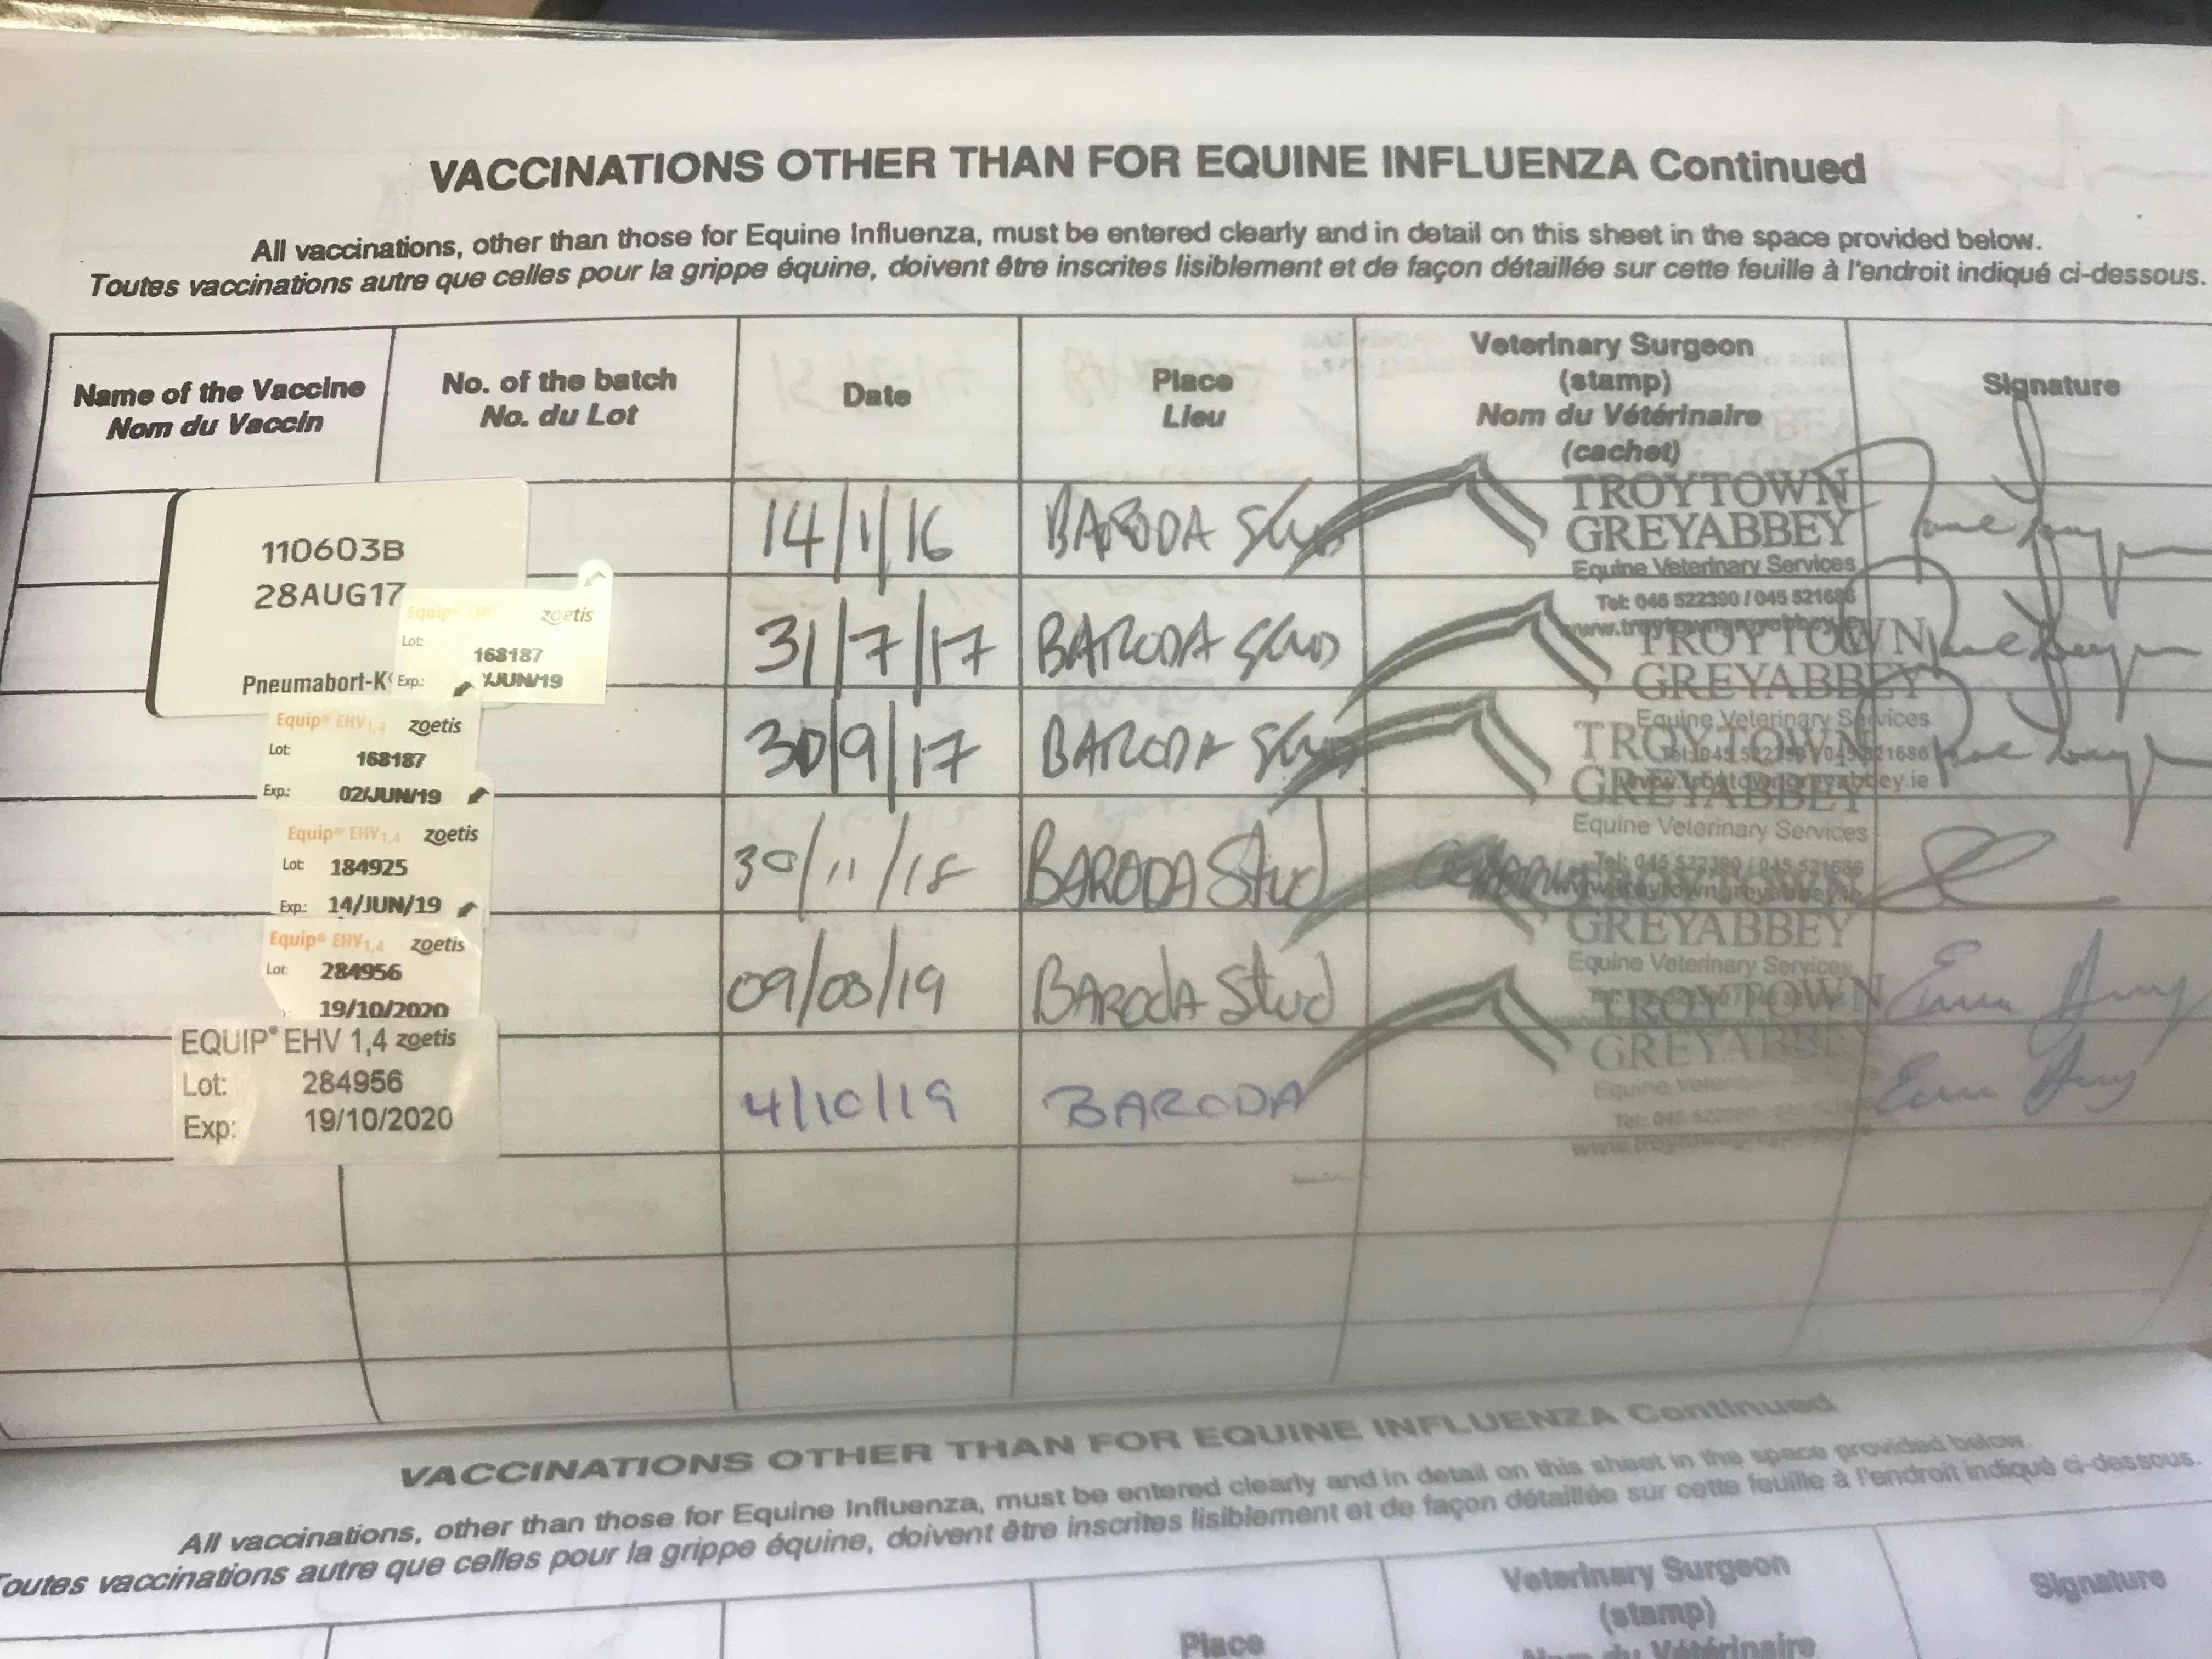 VACCINATIONS OTHER THAN FOR EQUINE INFLUENZA Continued
All vaccinations, other than those for Equine Influenza, must be entered clearly and in detail on this sheet in the space provided below.
Toutes vaccinations autre que celles pour la grippe équine, doivent être inscrites lisiblement et de façon détaillée sur cette feuille à l'endroit indiqué ci-dessous.
Name of the Vaccine
Nom du Vaccin
No. of the batch
No. du Lot
Date
Place
Lieu
Veterinary Surgeon
(stamp)
Nom du Vétérinaire
(cachet)
Signature
110603B
28AUG17
Pneumabort-K
14/1/16
BARODA Stud
TROYTOWN
GREYABBEY
Equine Veterinary Services
Tel: 045 522390 / 045 521686
www.troytowngreyabbey.ie
Equip® EHV zoetis
Lot: 168187
Exp: JUN/19
31/7/17
BARODA Stud
TROYTOWN
GREYABBEY
Equine Veterinary Services
Tel: 045 522390 / 045 521686
www.troytowngreyabbey.ie
Equip® EHV1,4 zoetis
Lot: 168187
Exp.: 02/JUN/19
30/9/17
BARODA Stud
TROYTOWN
GREYABBEY
Equine Veterinary Services
Tel: 045 522390 / 045 521686
www.troytowngreyabbey.ie
Equip® EHV1,4 zoetis
Lot: 184925
Exp.: 14/JUN/19
30/11/18
BARODA Stud
GREYABBEY
Equine Veterinary Services
Equip® EHV1,4 zoetis
Lot: 284956
19/10/2020
09/08/19
BARODA Stud
TROYTOWN
GREYABBEY
Equine
Tel: 045
EQUIP® EHV 1,4 zoetis
Lot: 284956
Exp: 19/10/2020
4/10/19
BARODA
VACCINATIONS OTHER THAN FOR EQUINE INFLUENZA Continued
All vaccinations, other than those for Equine Influenza, must be entered clearly and in detail on this sheet in the space provided below.
Toutes vaccinations autre que celles pour la grippe équine, doivent être inscrites lisiblement et de façon détaillée sur cette feuille à l'endroit indiqué ci-dessous.
Place
Veterinary Surgeon
(stamp)
Nom du Vétérinaire
Signature